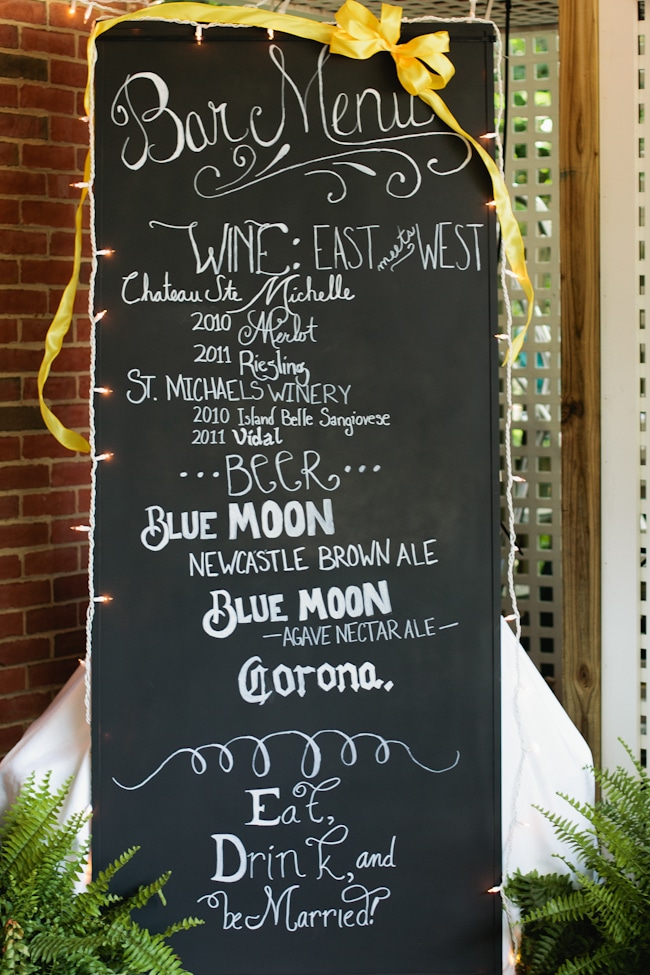 Bar Menu
WINE: EAST meets WEST
Chateau Ste Michelle
2010 Merlot
2011 Riesling
ST. MICHAELS WINERY
2010 Island Belle Sangiovese
2011 Vidal
...BEER...
BLUE MOON
NEWCASTLE BROWN ALE
BLUE MOON
—AGAVE NECTAR ALE—
Corona.
Eat,
Drink, and
be Married!